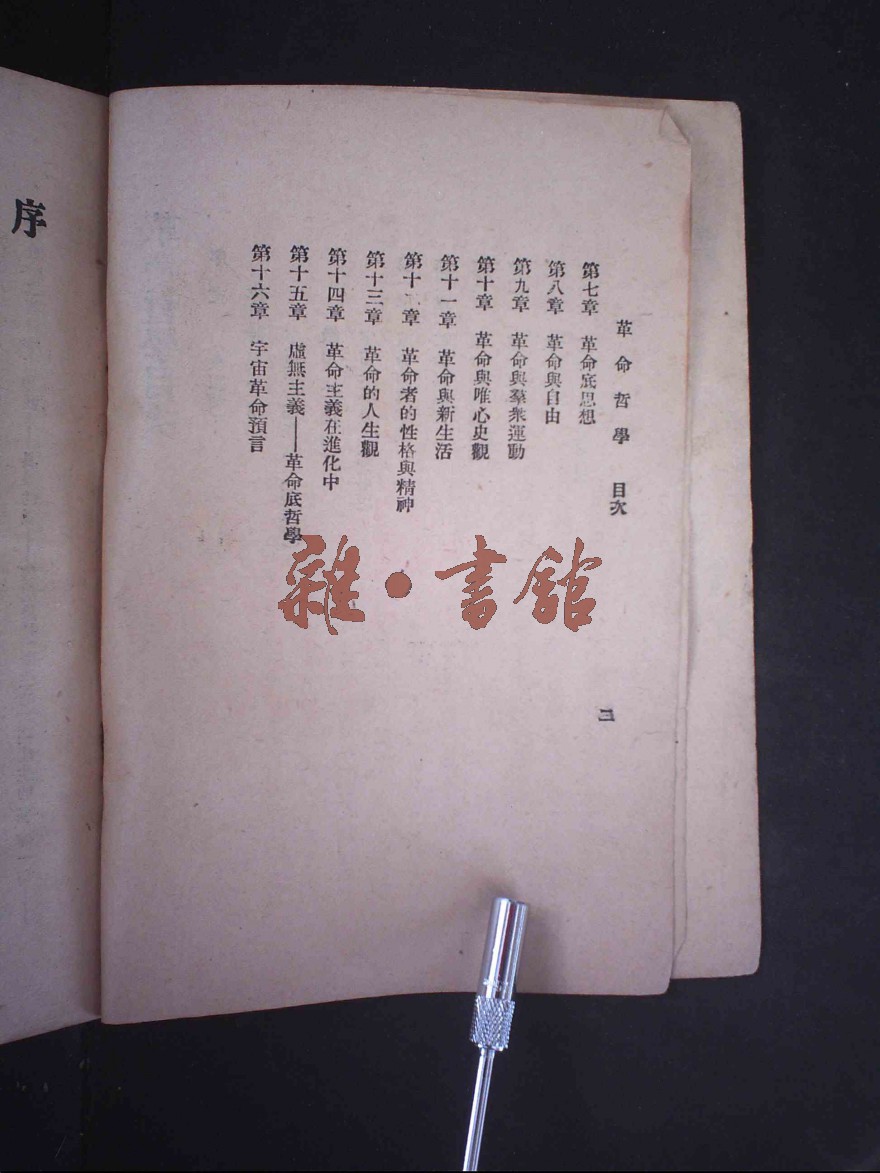 革命哲學 目次
三
第七章 革命底思想
第八章 革命與自由
第九章 革命與羣衆運動
第十章 革命與唯心史觀
第十一章 革命與新生活
第十二章 革命者的性格與精神
第十三章 革命的人生觀
第十四章 革命主義在進化中
第十五章 虛無主義——革命底哲學
第十六章 宇宙革命預言
序
雜·書館